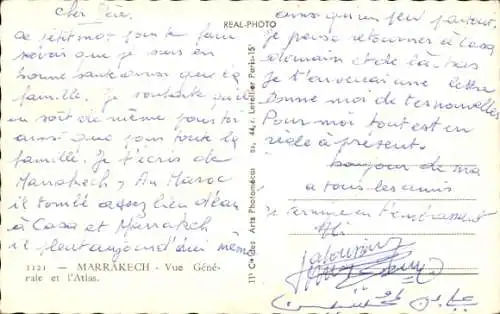 cher Père.
Ce petit mot pour te faire
savoir que je suis en
bonne santé ainsi que la
famille. Je souhaite qu'il
en soit de même pour toi
ainsi que pour toute la
famille. Je t'écris de
Marrakech, Au Maroc
il tombe assez bien d'eau
à Casa et Marrakech
il pleut aujourd'hui même
1121 — MARRAKECH - Vue Géné-
rale et l'Atlas.
REAL-PHOTO
ainsi qu'un peu partout.
Je pense retourner à Casa
demain et de là-bas
Je t'enverrai une lettre
Donne moi de tes nouvelles
Pour moi tout est en
règle à présent.
bonjour de ma
a tous les amis
Je termine en t'embrassant
Ali
Cie des Arts Photomécan
44, r. Letellier Paris-15